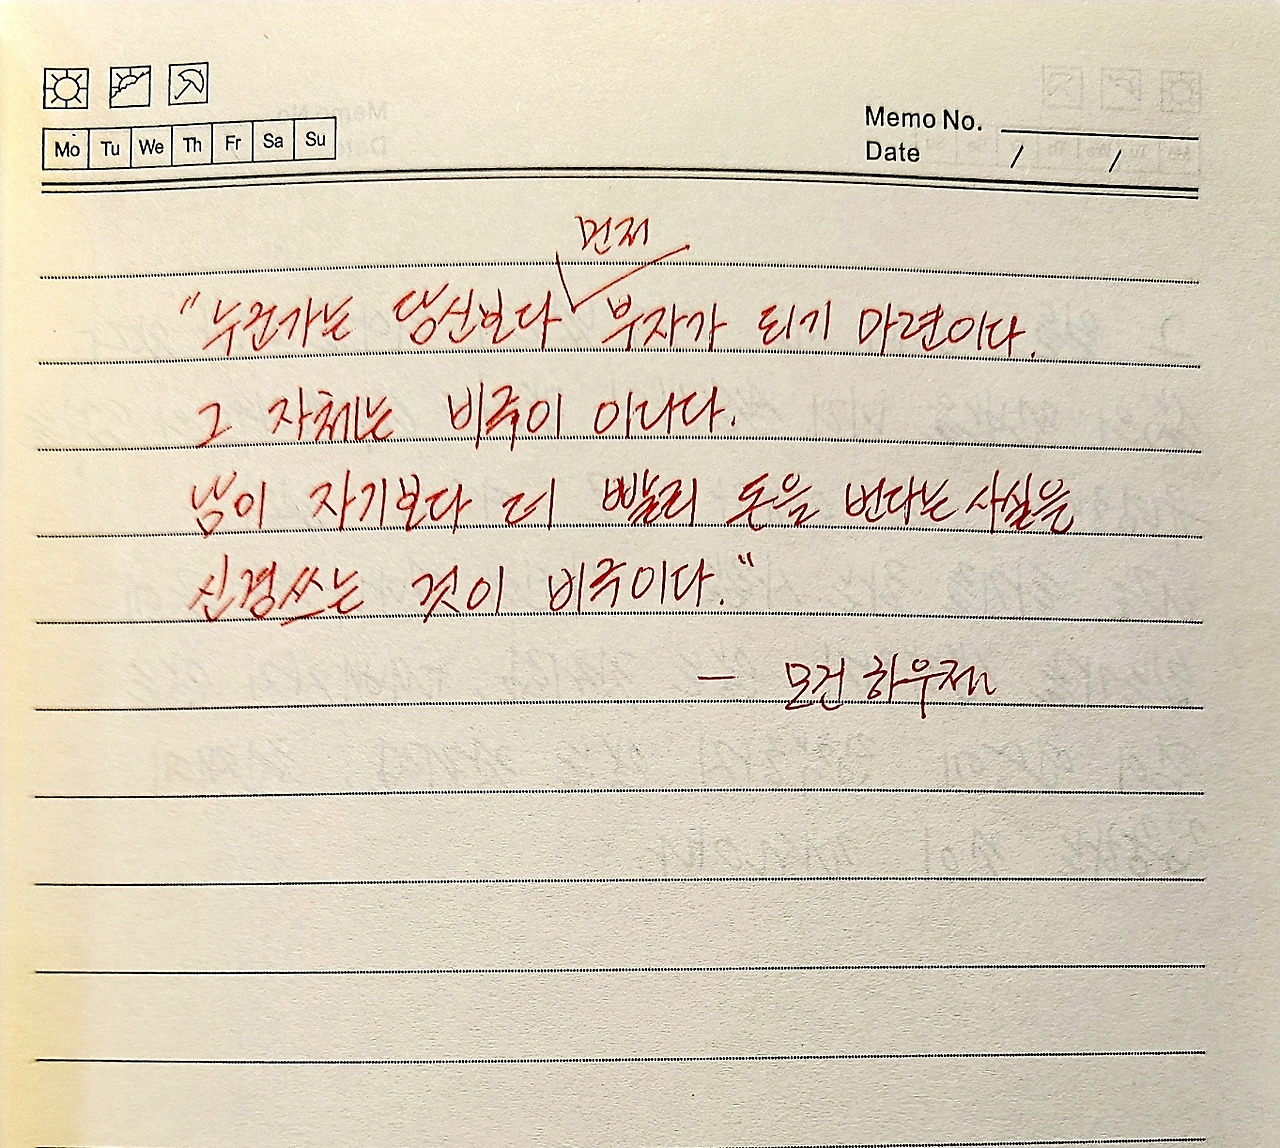 Mo Tu We Th Fr Sa Su
Memo No.
Date / /
먼저
"누건가는 당신보다 부자가 되기 마련이다.
그 자체는 비극이 아니다.
남이 자기보다 더 빨리 돈을 번다는 사실을
신경쓰는 것이 비극이다."
- 모건 하우젤